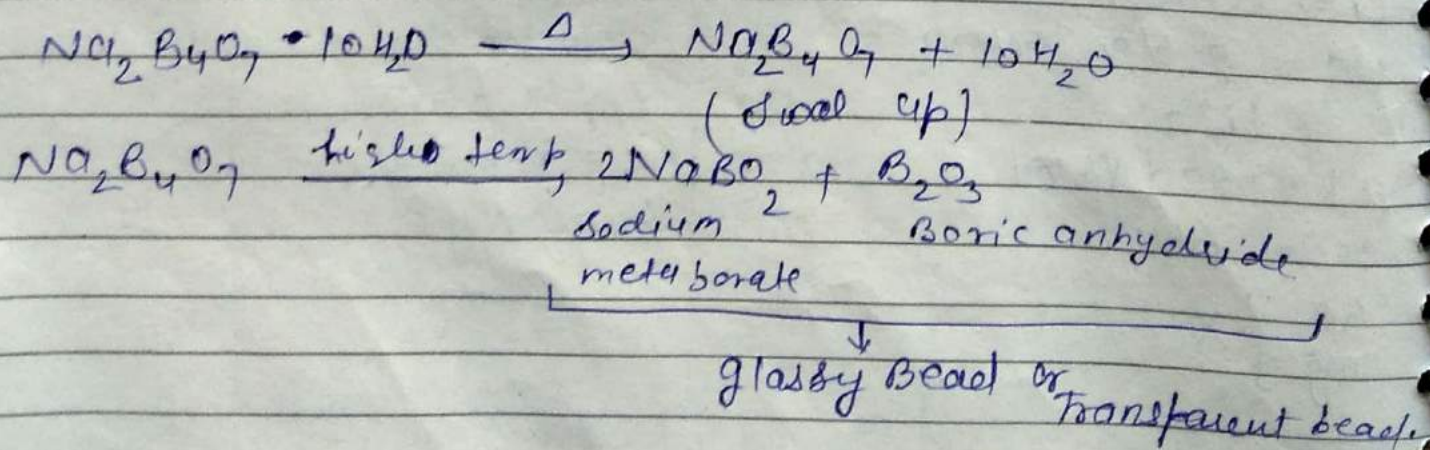 Na₂B₄O₇ • 10H₂O —Δ→ Na₂B₄O₇ + 10H₂O
(swel up)
Na₂B₄O₇ —higher temp→ 2NaBO₂ + B₂O₃
Sodium Boric anhydride
metaborate
↓
glassy Bead or
Transparent bead.